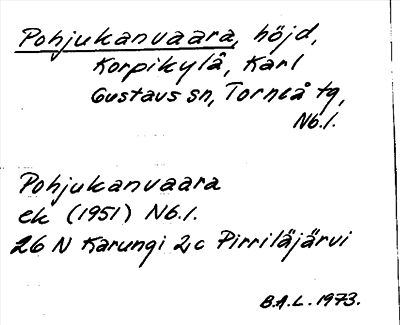 Pohjukanvaara, höjd,
Korpikylä, Karl
Gustavs sn, Torneå tg,
Nb.l.
Pohjukanvaara
ek (1951) Nb.l.
26 N Karungi 2,c Pirriläjärvi
B.A.L. 1973.